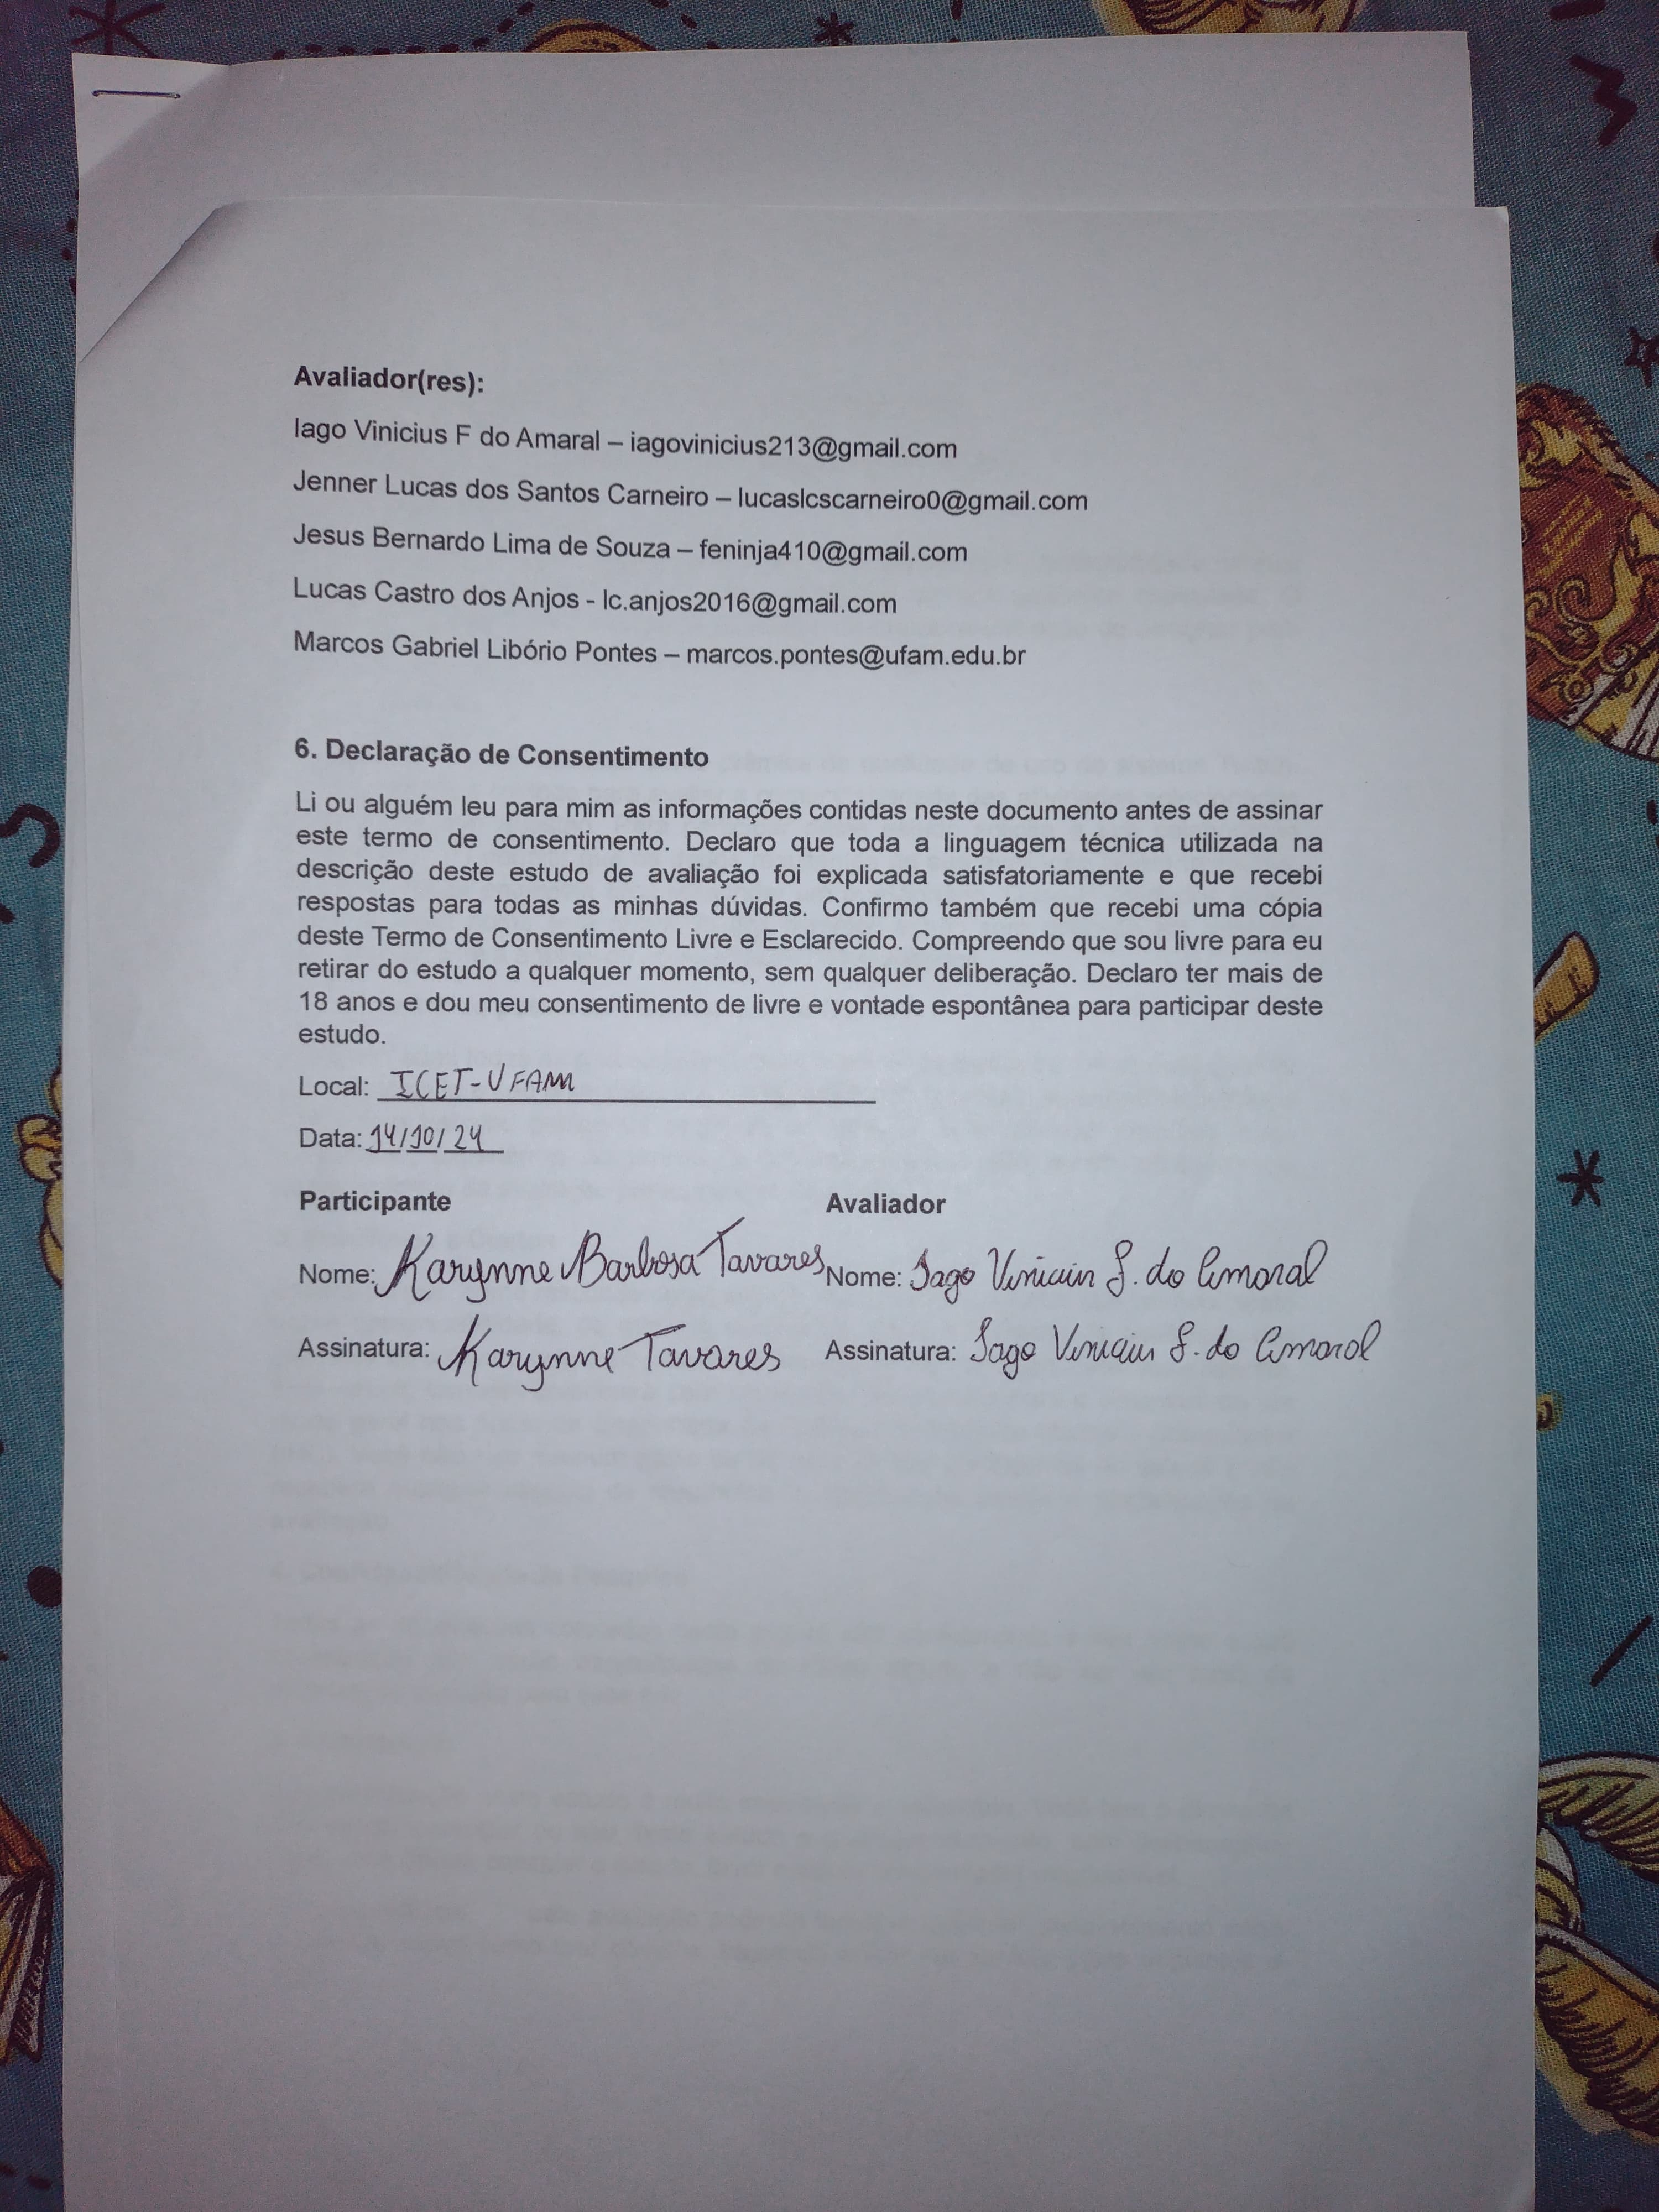 Avaliador(res):
Iago Vinicius F do Amaral – iagovinicius213@gmail.com
Jenner Lucas dos Santos Carneiro – lucaslcscarneiro0@gmail.com
Jesus Bernardo Lima de Souza – feninja410@gmail.com
Lucas Castro dos Anjos - lc.anjos2016@gmail.com
Marcos Gabriel Libório Pontes – marcos.pontes@ufam.edu.br
6. Declaração de Consentimento
Li ou alguém leu para mim as informações contidas neste documento antes de assinar
este termo de consentimento. Declaro que toda a linguagem técnica utilizada na
descrição deste estudo de avaliação foi explicada satisfatoriamente e que recebi
respostas para todas as minhas dúvidas. Confirmo também que recebi uma cópia
deste Termo de Consentimento Livre e Esclarecido. Compreendo que sou livre para eu
retirar do estudo a qualquer momento, sem qualquer deliberação. Declaro ter mais de
18 anos e dou meu consentimento de livre e vontade espontânea para participar deste
estudo.
Local: ICET-UFAM
Data: 14/10/24
Participante Avaliador
Nome: Karynne Barbosa Tavares Nome: Iago Vinicius F. do Amaral
Assinatura: Karynne Tavares Assinatura: Iago Vinicius F. do Amaral